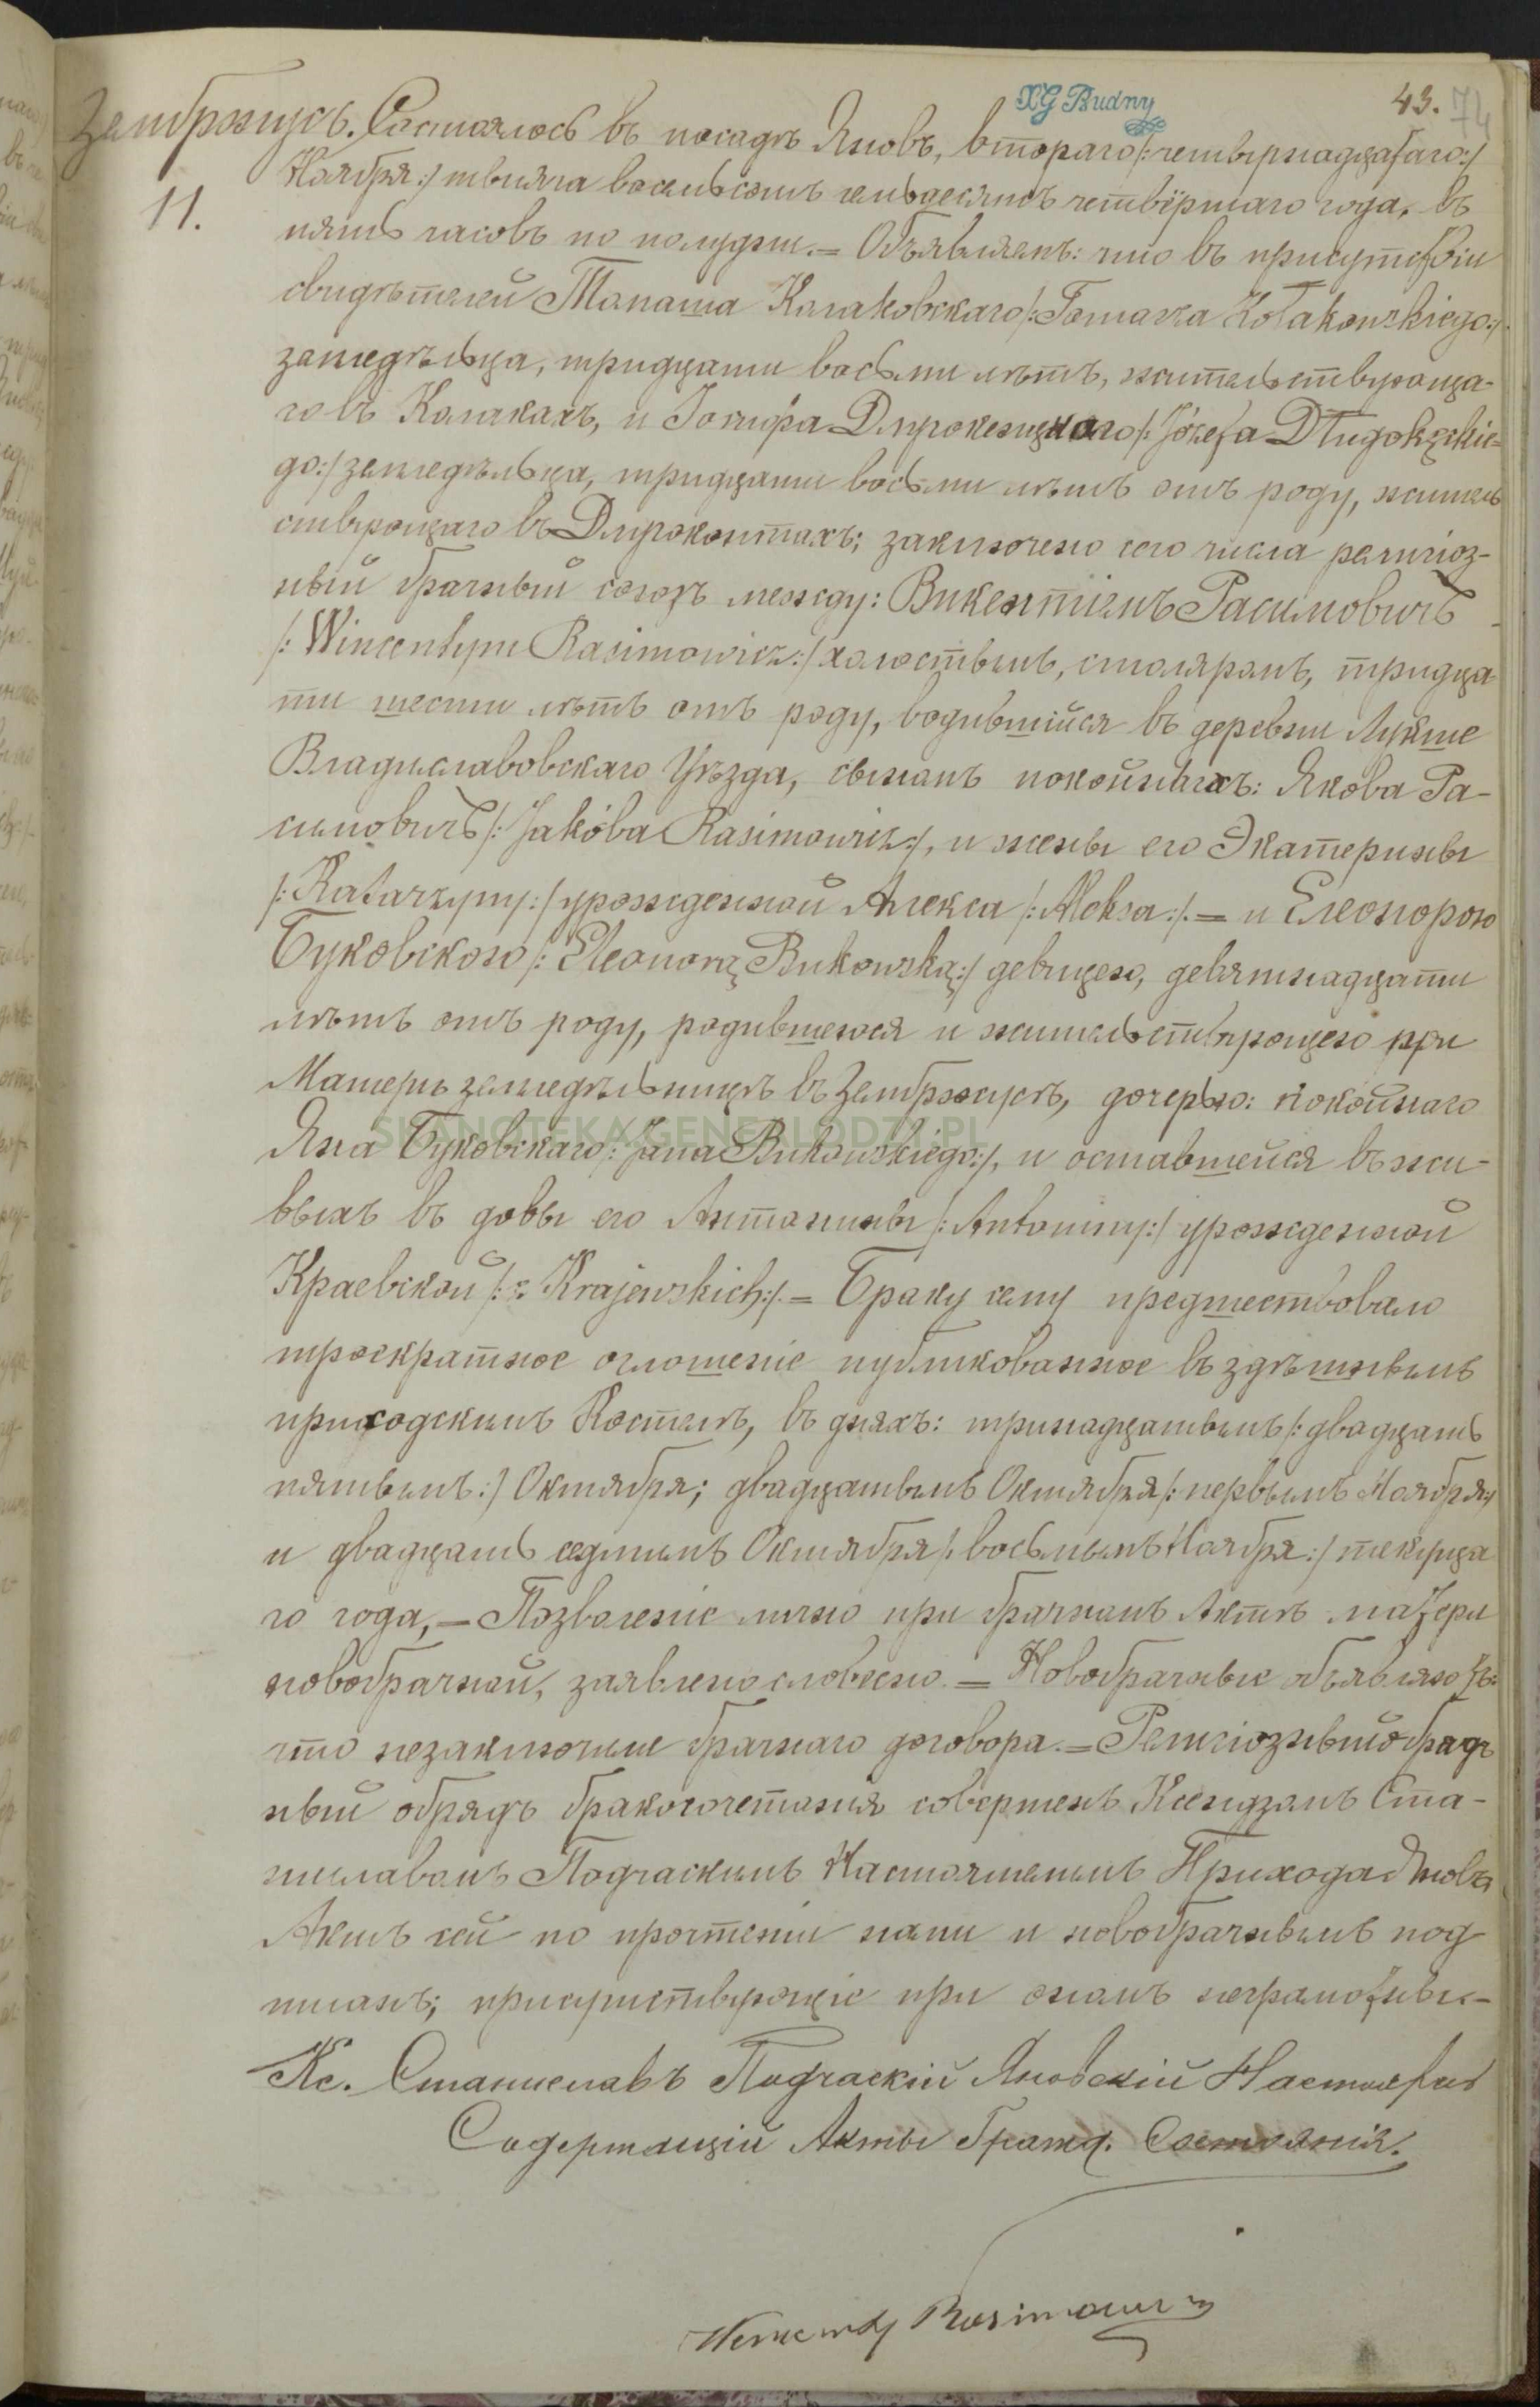 XG Budny
43. 74
Замбржицъ. Состоялось въ посадѣ Яновъ, втораго /:четырнадцатаго:/
11.
Ноября:/ тысяча восемьсотъ семьдесятъ четвёртаго года, въ
пять часовъ по полудни.= Объявляемъ: что въ присутствіи
свидѣтелей Томаша Колаковскаго /:Tomasza Kołakowskiego:/
земледѣльца, тридцати восьми лѣтъ, жительствующа-
го въ Колакахъ, и Іосифа Длугокецкаго /:Józefa Długokęckie-
go:/ земледѣльца, тридцати восьми лѣтъ отъ роду, житель
ствующаго въ Длугоконтахъ; заключено сего числа религіоз-
ный брачный союзъ между: Викентіемъ Расимовичъ
/:Wincentym Rasimowicz:/ холостымъ, столяромъ, тридца
ти шести лѣтъ отъ роду, родившійся въ деревни Лукше
Владиславовскаго Уѣзда, сыномъ покойныхъ: Якова Ра-
симовичъ /:Jakóba Rasimowicz:/, и жены его Экатерины
/:Katarzyny:/ урожденной Алекса /:Aleksa:/.= и Елеонорою
Буковскою /:Eleonorą Bukowską:/ девицею, девятнадцати
лѣтъ отъ роду, родившеюся и жительствующею при
Матери земледѣльницѣ въ Замбржицѣ, дочерью: покойнаго
Яна Буковскаго /:Jana Bukowskiego:/, и оставшейся въ жи-
выхъ въ довы его Антонины /:Antoniny:/ урожденной
Краевской /:z Krajewskich:/.= Браку сему предшествовало
троекратное оглошеніе публикованное въ здѣшнымъ
приходскимъ Костелѣ, въ дняхъ: тринадцатымъ /:двадцать
пятымъ:/ Октября; двадцатымъ Октября /:первымъ Ноября:/
и двадцать седмымъ Октября /:восьмымъ Ноября:/ текуща
го года,= Позволеніе лично при брачномъ Актѣ матери
новобрачной, заявлено словесно.= Новобрачные объявляютъ:
что незаключили брачнаго договора.= Религіозный обрядъ
ный обрядъ бракосочетанія совершенъ Ксендзомъ Ста-
ниславомъ Подчаскимъ Настоятелемъ Прихода Яновъ
Актъ сей по прочтеніи нами и новобрачнымъ под
писанъ; присутствующіе при ономъ неграмотны.-
Кс. Станиславъ Подчаскій Яновскій Настоятель
Содержащій Акты Гражд. Состоянія.
Wincenty Rasimowicz
SKANOTEKA.GENEALODZY.PL